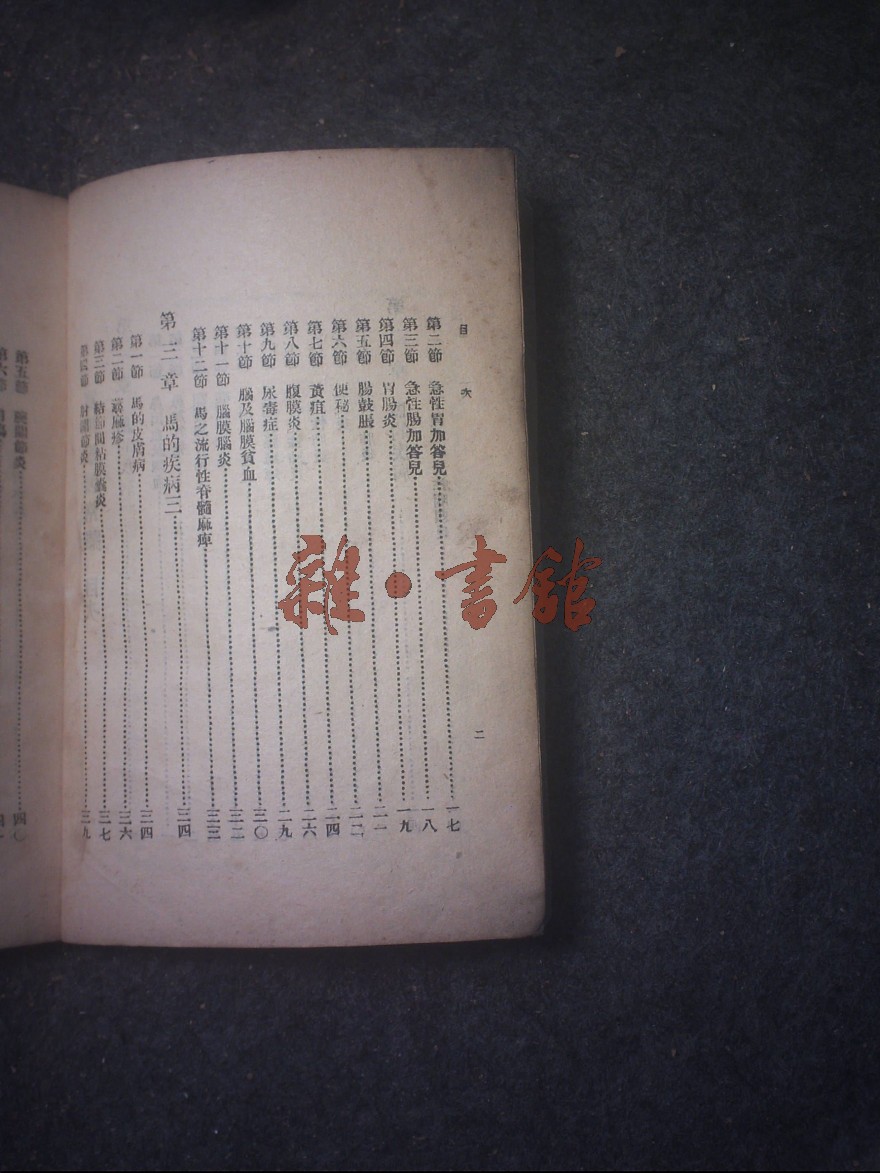 目次
二
第二節 急性胃加答兒 一七
第三節 急性腸加答兒 一八
第四節 胃腸炎 一九
第五節 腸鼓脹 二一
第六節 便秘 二二
第七節 黃疸 二四
第八節 腹膜炎 二六
第九節 尿毒症 二九
第十節 腦及腦膜貧血 三〇
第十一節 腦膜腦炎 三二
第十二節 馬之流行性脊髓麻痺 三三
第三章 馬的疾病三 三四
第一節 馬的皮膚病 三四
第二節 蕁麻疹 三六
第三節 結節間粘膜囊炎 三七
第四節 肘關節炎 三九
第五節 腕關節炎 四〇
第六節
雜·書館